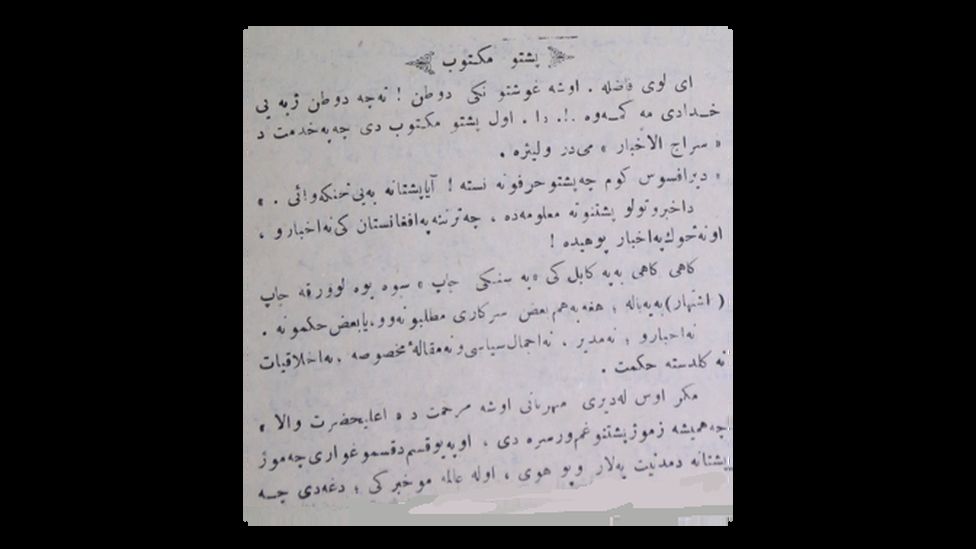 پشتو مکتوب
ای لوی فاضله . اوشه غوشتو نکی دوطن ! نه‌چه دوطن ژبه یی
خـدادی مه کمـه‌وه .!. دا . اول پشتو مکتوب دی چه‌په‌خدمت د
« سراج الاخبار » می‌در ولیژه .
« دیرافسوس کوم چه‌پشتوحرفونه نسته ! آیاپشتانه به‌یی‌څنکه‌وائی . »
داخبروتولو پشتنوته معلومه‌ده ، چه‌ترننه‌په‌افغانستان کی‌نه‌اخبارو ،
اونه‌څوك‌په‌اخبار پوهیده !
کاهی کاهی به‌په کابل‌کی «په سنکی چاپ » سوه یوه لوورقه چاپ
( اشتهار ) به‌په‌باله ؛ هغه‌به‌هم‌بعض سرکاری مطلبونه‌وو،یابعض‌حکمونه .
نه‌اخبارو ؛ نه‌مدیر ، نه‌اجمال‌سیاسی‌ونه‌مقالۀ‌مخصوصه ،نه‌اخلاقیات
نه کلدسته حکمت .
مکر اوس له‌دیری مهربانی اوشه مرحمت د ه اعلیحضرت والا »
چه‌همیشه زموژپشتنوغم‌ورسره دی ، اوپه‌یوقسم‌دقسموغواری‌چه‌موژ
پشتانه دمدنیت په‌لار ویو هوی ، اوله عالمه موخبرکی ؛ دغه‌دی چـه